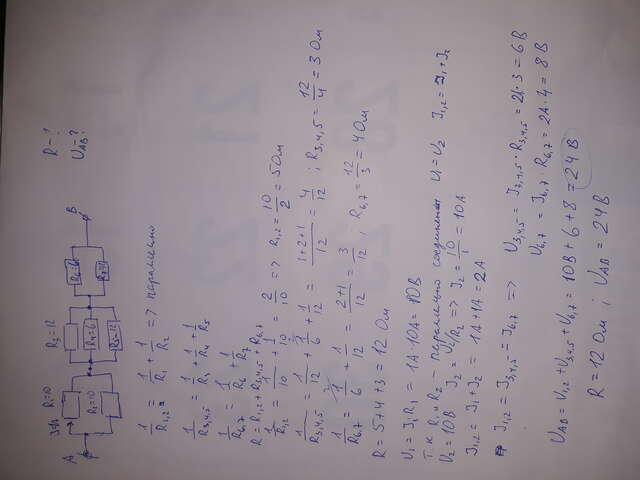 R1=10 R3=12 R-?
J=1A
A R4=6 R6=6 B UAB-?
R2=10 R5=12
1/R1,2 = 1/R1 + 1/R2 => параллельно
1/R3,4,5 = 1/R3 + 1/R4 + 1/R5
1/R6,7 = 1/R6 + 1/R7
R = R1,2 + R3,4,5 + R6,7
1/R1,2 = 1/10 + 1/10 = 2/10 => R1,2 = 10/2 = 5 Ом
1/R3,4,5 = 1/12 + 1/6 + 1/12 = 1+2+1/12 = 4/12 ; R3,4,5 = 12/4 = 3 Ом
1/R6,7 = 1/6 + 1/12 = 2+1/12 = 3/12 ; R6,7 = 12/3 = 4 Ом
R = 5+4+3 = 12 Ом
U1 = J1 R1 = 1A·10A = 10В
Т.к R1 и R2 - параллельно соединены U1 = U2 J1,2 = J1 + J2
U2 = 10В J2 = U2/R2 => J2 = 10/1 = 10A
J1,2 = J1 + J2 = 1A+1A = 2A
J1,2 = J3,4,5 = J6,7 => U3,4,5 = J3,4,5 · R3,4,5 = 2A·3 = 6В
U6,7 = J6,7 · R6,7 = 2A·4 = 8В
UAB = U1,2 + U3,4,5 + U6,7 = 10В + 6 + 8 = 24В
R = 12 Ом ; UAB = 24В